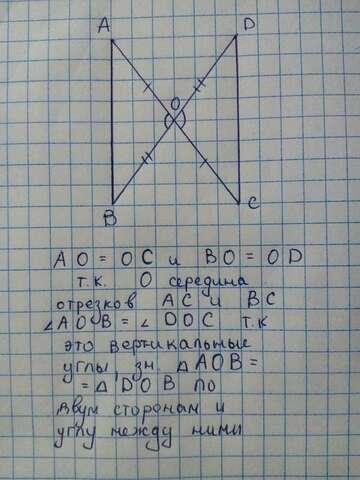 A D
O
B C
AO = OC и BO = OD
т.к. O середина
отрезков AC и BC
∠AOB = ∠DOC т.к
это вертикальные
углы, зн. △AOB =
= △DOB по
двум сторонам и
углу между ними